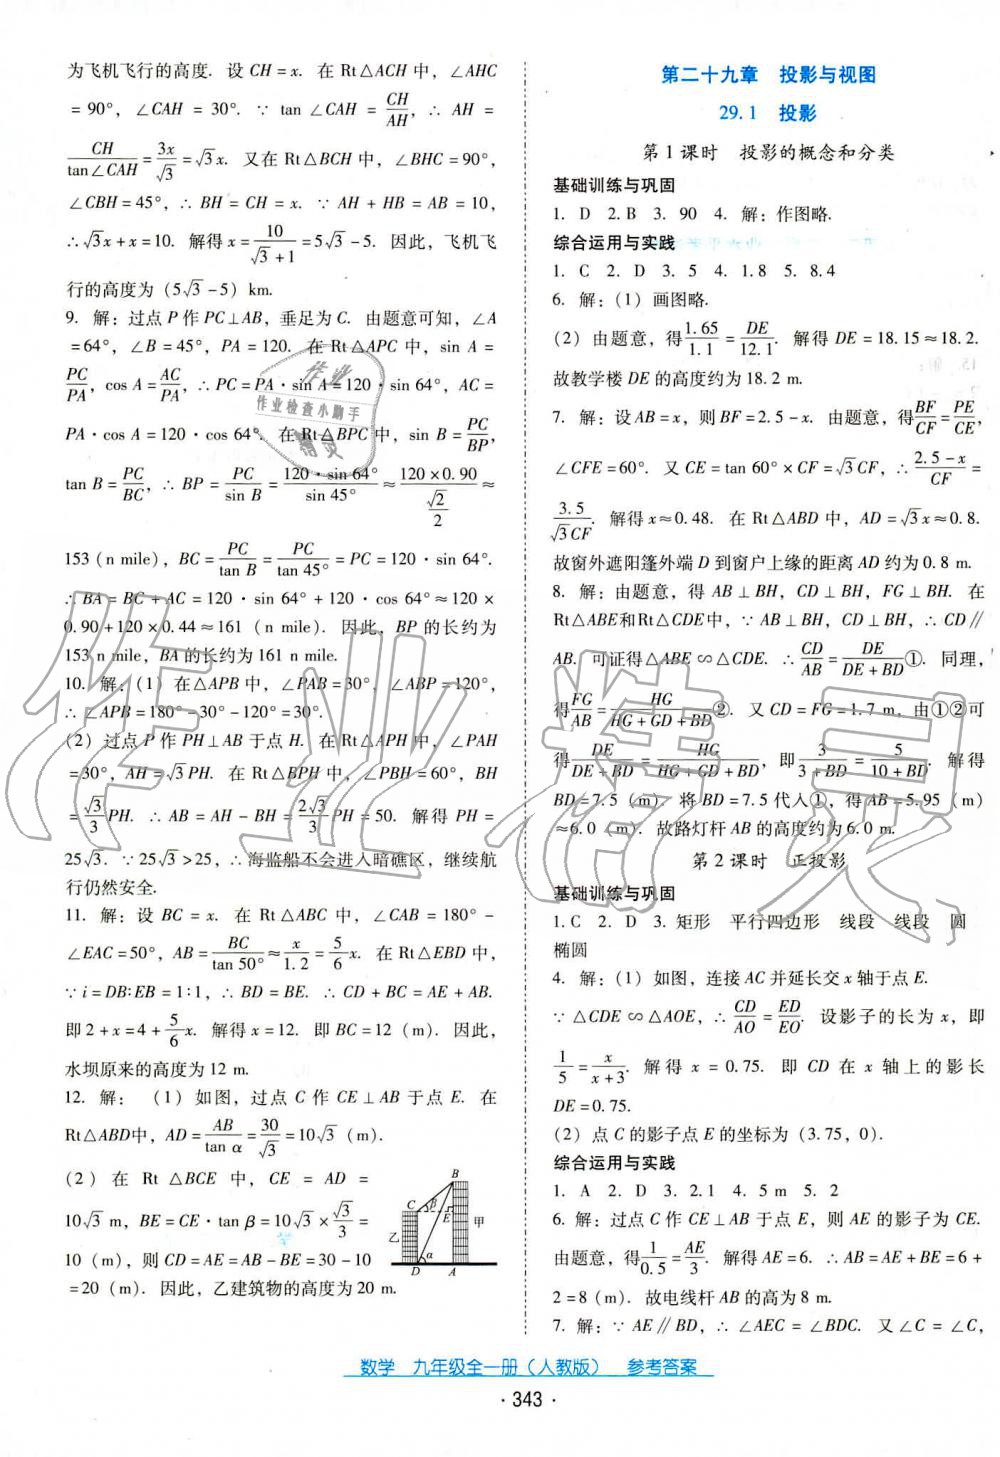 为飞机飞行的高度. 设 CH = x. 在 Rt△ACH 中, ∠AHC
= 90°, ∠CAH = 30°. ∵ tan ∠CAH = CH/AH, ∴ AH =
CH/tan∠CAH = 3x/√3 = √3 x. 又在 Rt△BCH 中, ∠BHC = 90°,
∠CBH = 45°, ∴ BH = CH = x. ∵ AH + HB = AB = 10,
∴ √3 x + x = 10. 解得 x = 10/(√3 + 1) = 5√3 - 5. 因此, 飞机飞
行的高度为 (5√3 - 5) km.
9. 解: 过点 P 作 PC⊥AB, 垂足为 C. 由题意可知, ∠A
= 64°, ∠B = 45°, PA = 120. 在 Rt△APC 中, sin A =
PC/PA, cos A = AC/PA, ∴ PC = PA · sin A = 120 · sin 64°, AC =
PA · cos A = 120 · cos 64°. 在 Rt△BPC 中, sin B = PC/BP,
tan B = PC/BC, ∴ BP = PC/sin B = 120 · sin 64°/sin 45° ≈ 120 × 0.90/(√2/2) ≈
153 (n mile), BC = PC/tan B = PC/tan 45° = PC = 120 · sin 64°.
∴ BA = BC + AC = 120 · sin 64° + 120 · cos 64° ≈ 120 ×
0.90 + 120 × 0.44 ≈ 161 (n mile). 因此, BP 的长约为
153 n mile, BA 的长约为 161 n mile.
10. 解: (1) 在△APB 中, ∠PAB = 30°, ∠ABP = 120°,
∴ ∠APB = 180° - 30° - 120° = 30°.
(2) 过点 P 作 PH⊥AB 于点 H. 在 Rt△APH 中, ∠PAH
= 30°, AH = √3 PH. 在 Rt△BPH 中, ∠PBH = 60°, BH
= √3/3 PH. ∴ AB = AH - BH = 2√3/3 PH = 50. 解得 PH =
25√3. ∵ 25√3 > 25, ∴ 海监船不会进入暗礁区, 继续航
行仍然安全.
11. 解: 设 BC = x. 在 Rt△ABC 中, ∠CAB = 180° -
∠EAC = 50°, AB = BC/tan 50° ≈ x/1.2 = 5/6 x. 在 Rt△EBD 中,
∵ i = DB:EB = 1:1, ∴ BD = BE. ∴ CD + BC = AE + AB.
即 2 + x = 4 + 5/6 x. 解得 x = 12. 即 BC = 12 (m). 因此,
水坝原来的高度为 12 m.
12. 解: (1) 如图, 过点 C 作 CE⊥AB 于点 E. 在
Rt△ABD中, AD = AB/tan α = 30/√3 = 10√3 (m).
(2) 在 Rt △BCE 中, CE = AD =
10√3 m, BE = CE · tan β = 10√3 × √3/3 =
10 (m), 则 CD = AE = AB - BE = 30 - 10
= 20 (m). 因此, 乙建筑物的高度为 20 m.
B
C
β
E
乙
甲
α
D
A
第二十九章 投影与视图
29.1 投影
第 1 课时 投影的概念和分类
基础训练与巩固
1. D 2. B 3. 90 4. 解: 作图略.
综合运用与实践
1. C 2. D 3. 5 4. 1.8 5. 8.4
6. 解: (1) 画图略.
(2) 由题意, 得 1.65/1.1 = DE/12.1. 解得 DE = 18.15 ≈ 18.2.
故教学楼 DE 的高度约为 18.2 m.
7. 解: 设 AB = x, 则 BF = 2.5 - x. 由题意, 得 BF/CF = PE/CE,
∠CFE = 60°. 又 CE = tan 60° × CF = √3 CF, ∴ (2.5 - x)/CF =
3.5/√3CF. 解得 x ≈ 0.48. 在 Rt△ABD 中, AD = √3 x ≈ 0.8.
故窗外遮阳篷外端 D 到窗户上缘的距离 AD 约为 0.8 m.
8. 解: 由题意, 得 AB⊥BH, CD⊥BH, FG⊥BH. 在
Rt△ABE和Rt△CDE中, ∵ AB⊥BH, CD⊥BH, ∴ CD∥
AB. 可证得△ABE∽△CDE. ∴ CD/AB = DE/(DE + BD) ①. 同理,
得 FG/AB = HG/(HG + GD + BD) ②. 又 CD = FG = 1.7 m, 由①②可
得 DE/(DE + BD) = HG/(HG + GD + BD), 即 3/(3 + BD) = 5/(10 + BD). 解得
BD = 7.5 (m). 将 BD = 7.5 代入①, 得 AB = 5.95 (m)
≈ 6.0 (m). 故路灯杆 AB 的高度约为 6.0 m.
第 2 课时 正投影
基础训练与巩固
1. C 2. D 3. 矩形 平行四边形 线段 线段 圆
椭圆
4. 解: (1) 如图, 连接 AC 并延长交 x 轴于点 E.
∵ △CDE∽△AOE, ∴ CD/AO = ED/EO. 设影子的长为 x, 即
1/5 = x/(x + 3). 解得 x = 0.75. 即 CD 在 x 轴上的影长
DE = 0.75.
(2) 点 C 的影子点 E 的坐标为 (3.75, 0).
综合运用与实践
1. A 2. D 3. 2.1 4. 5 m 5. 2
6. 解: 过点 C 作 CE⊥AB 于点 E, 则 AE 的影子为 CE.
由题意, 得 1/0.5 = AE/3. 解得 AE = 6. ∴ AB = AE + BE = 6 +
2 = 8 (m). 故电线杆 AB 的高为 8 m.
7. 解: ∵ AE∥BD, ∴ ∠AEC = ∠BDC. 又∠C = ∠C,
数学 九年级全一册 (人教版) 参考答案
· 343 ·
作业
作业检查小助手
精灵
作业精灵